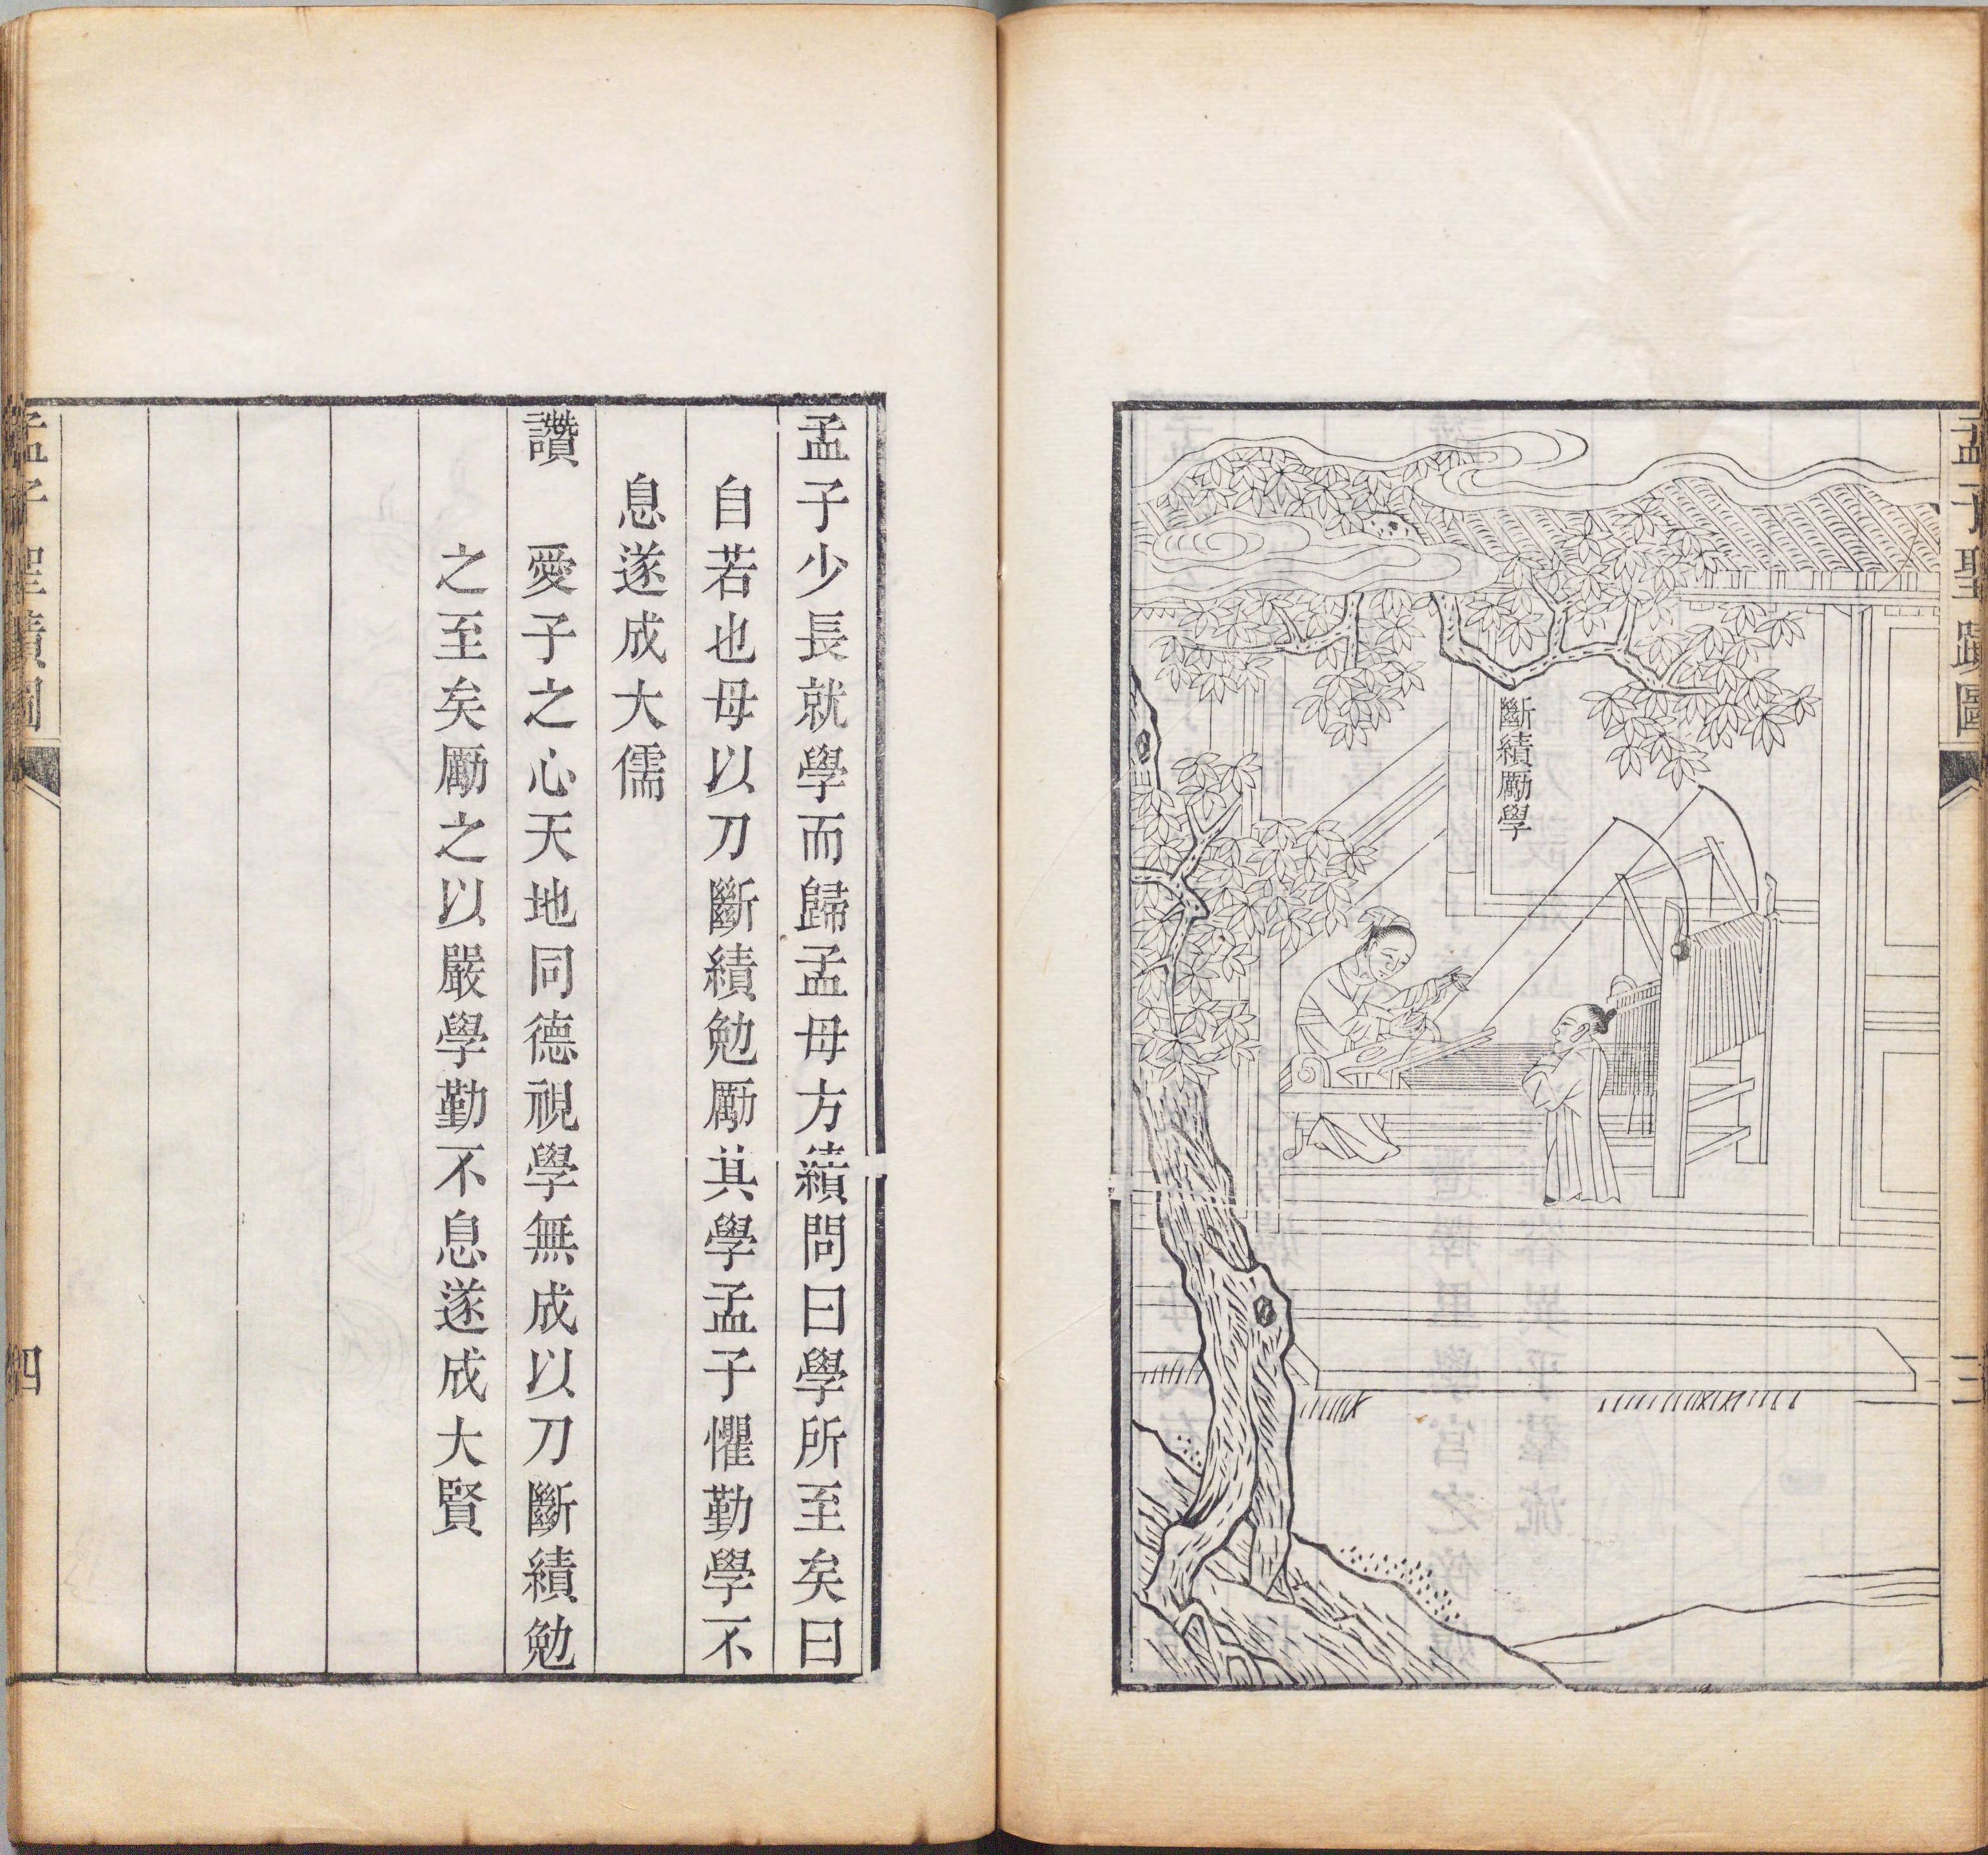 孟子聖蹟圖
三
斷績勵學
孟子少長就學而歸孟母方績問曰學所至矣曰
自若也母以刀斷績勉勵其學孟子懼勤學不
息遂成大儒
讚　愛子之心天地同德視學無成以刀斷績勉
之至矣勵之以嚴學勤不息遂成大賢
孟子聖蹟圖
四